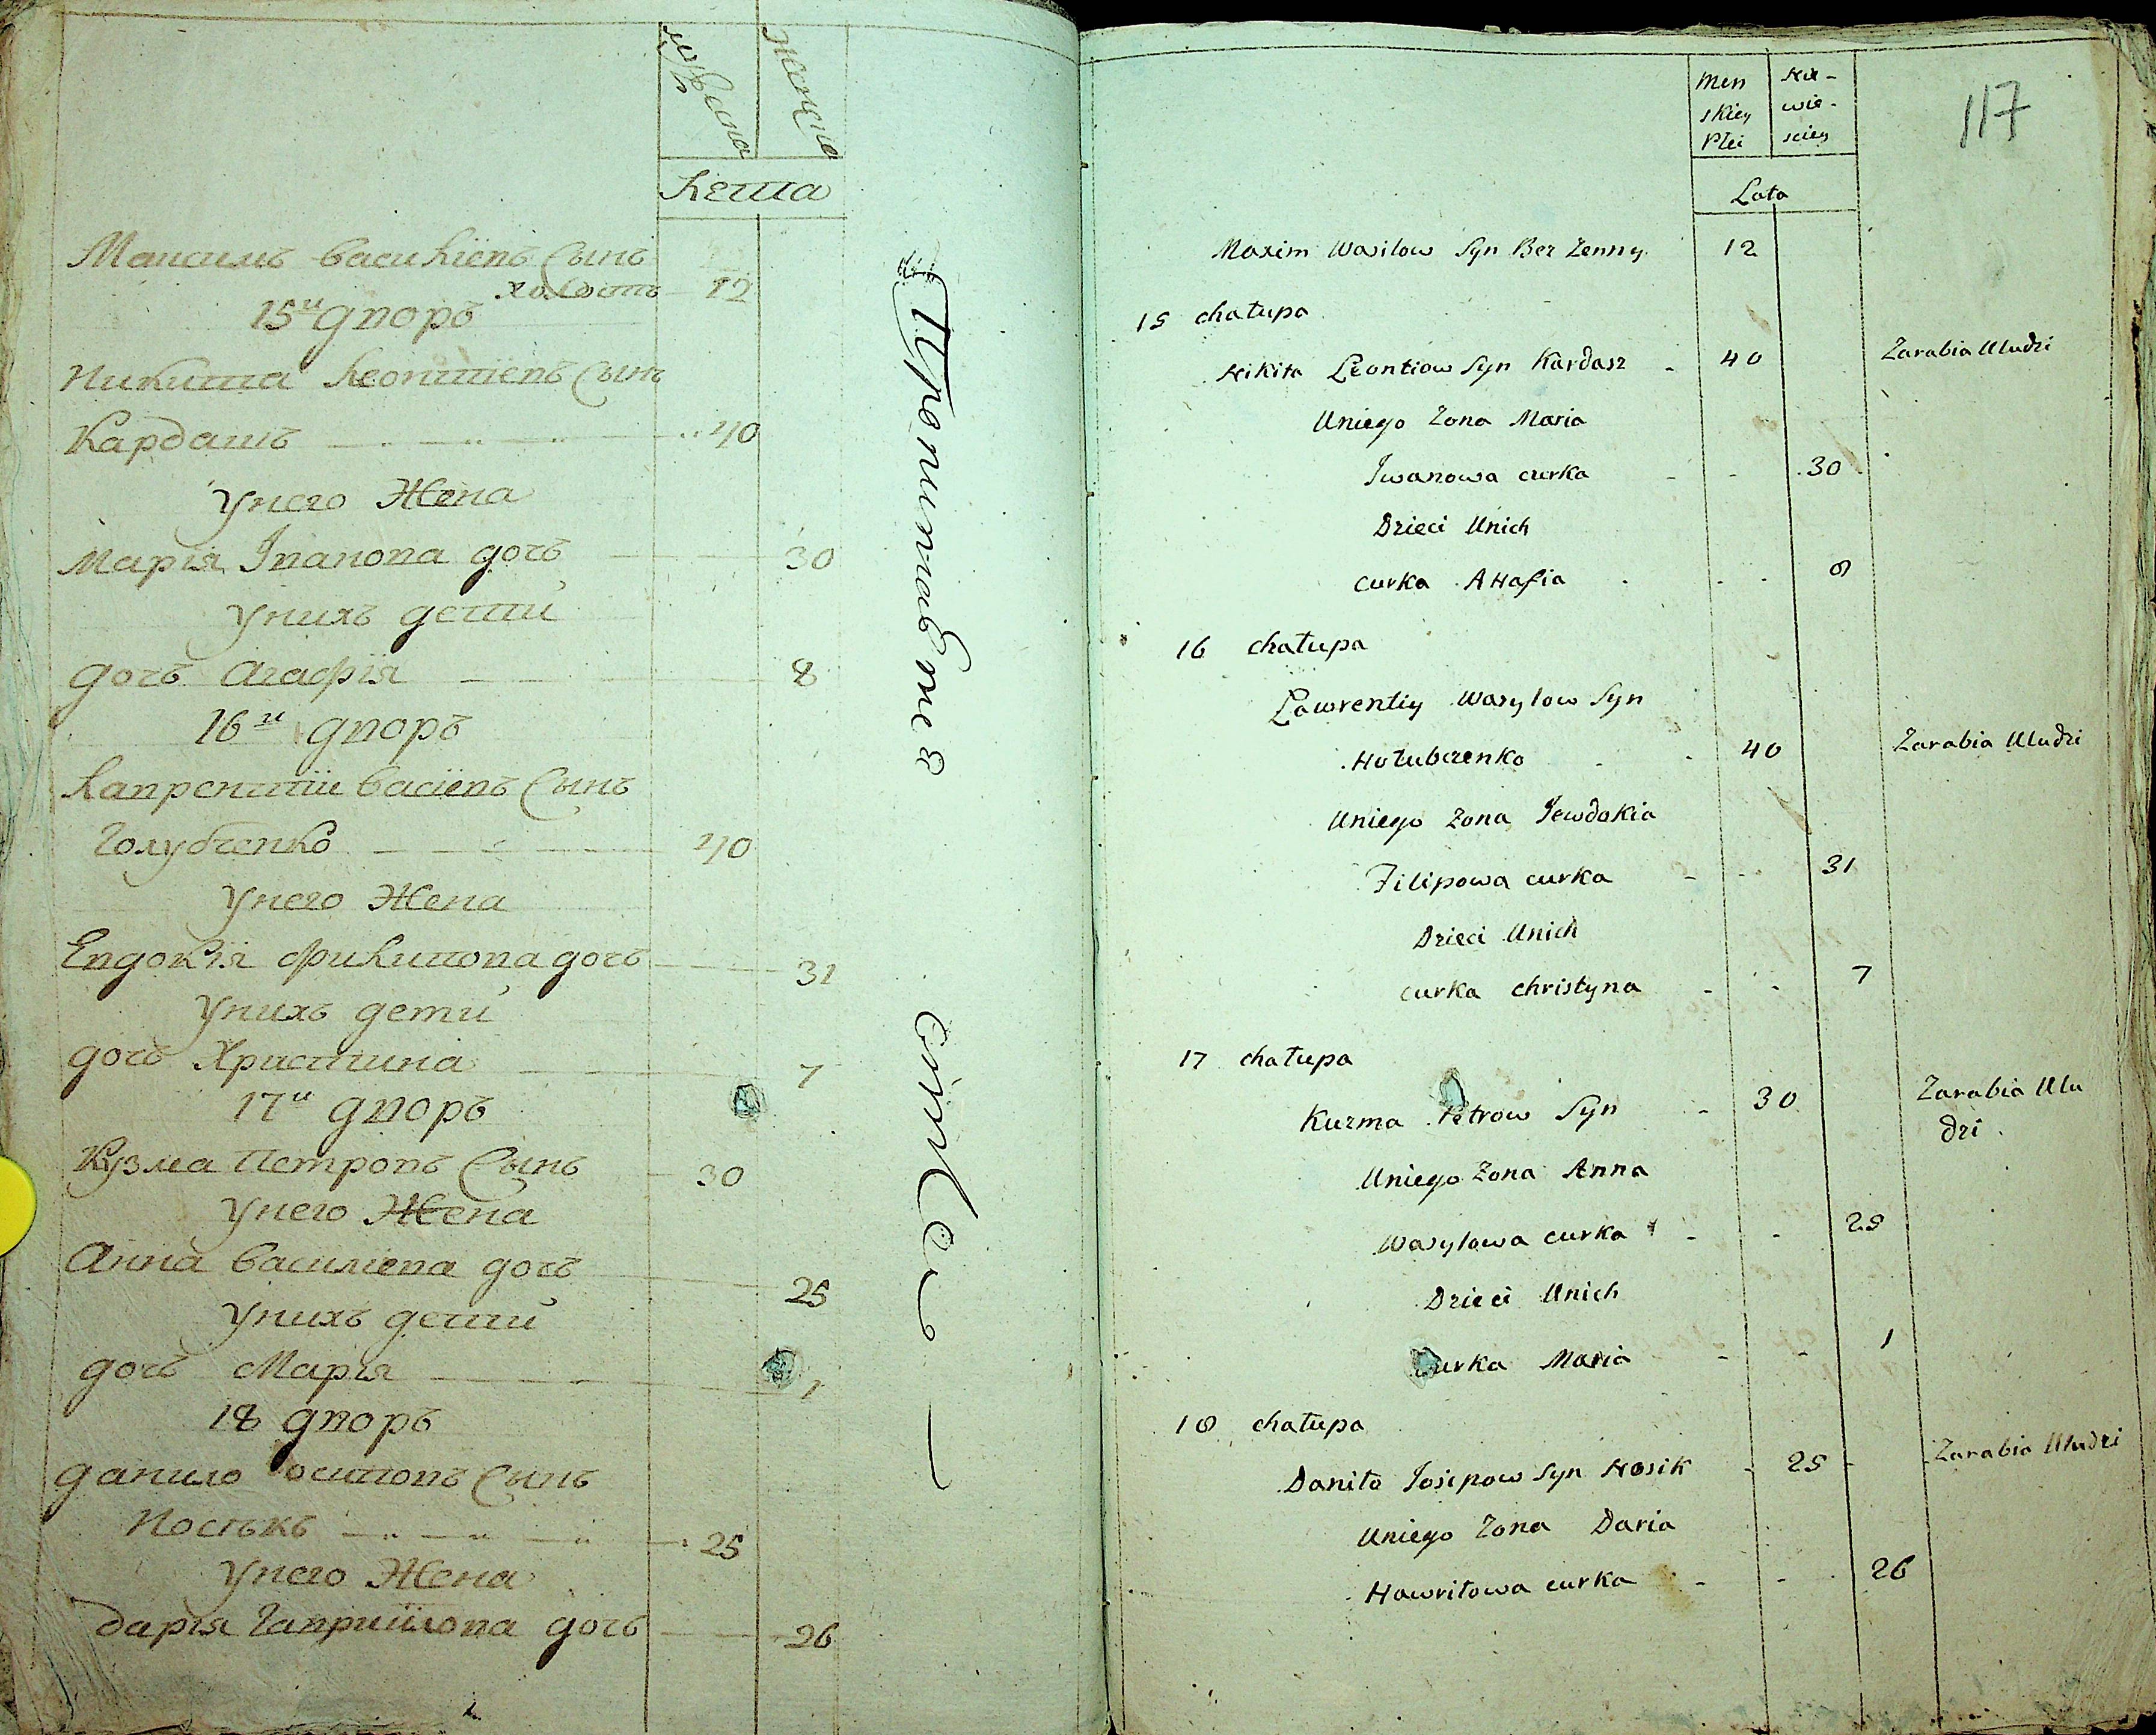 Лета
Максимъ Василіевъ Сынъ
холостъ 12
15й дворъ
Никита Леонтіевъ Сынъ
Кардашъ 40
У него Жена
Марія Іванова дочь 30
У нихъ дети
дочь Агафія 8
16й дворъ
Лаврентіи Васіевъ Сынъ
Голубченко 40
У него Жена
Евдокія Филипова дочь 31
У нихъ дети
дочь Христина 7
17й дворъ
Кузма Петровъ Сынъ 30
У него Жена
Анна Василіева дочь 25
У нихъ дети
дочь Марія 1
18 дворъ
Данило Осиповъ Сынъ
Носъкъ 25
У него Жена
Дарія Гавриилова дочь 26
Men
skiey
Płci
Nie-
wie-
sciey
117
Lata
Maxim Wasilow Syn Bez Zenny 12
15 chałupa
Nikita Leontiow Syn Kardasz 40 Zarabia Uludzi
Uniego Zona Maria
Iwanowa curka 30
Dzieci Unich
curka AHafia 8
16 chałupa
Lawrentiy Wasylow Syn
Hołubczenko 40 Zarabia Uludzi
Uniego Zona Jewdokia
Filipowa curka 31
Dzieci Unich
curka christyna 7
17 chałupa
Kuzma Petrow Syn 30 Zarabia Ulu
dzi
Uniego Zona Anna
Wasylowa curka 25
Dzieci Unich
Curka Maria 1
18 chałupa
Daniło Josipow Syn Nosik 25 Zarabia Uludzi
Uniego Zona Daria
Hawriłowa curka 26